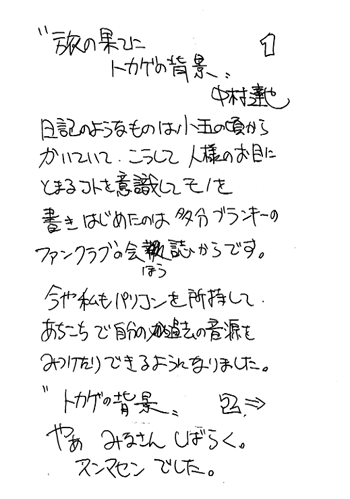 〝旅の果てに 1
トカゲの背景〟
中村達也
日記のようなものは小五の頃から
かいていて、こうして人様のお目に
とまるコトを意識してモノを
書きはじめたのは多分ブランキーの
ファンクラブの会報誌からです。
ほう
今や私もパソコンを所持して、
あちこちで自分の過去の音源を
みつけたりできるようになりました。
〝トカゲの背景〟 2、⇒
やぁ みなさん しばらく。
スンマセン でした。